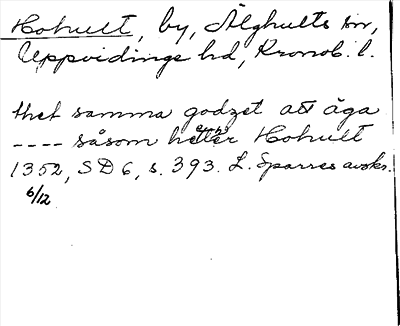 Hohult, by, Älghults sn,
Uppvidinge hd, Kronob. l.
thet samma godzet att äga
---- såsom heter Hohult
1352, SD 6, s. 393. L. Sparres avskr.
6/12